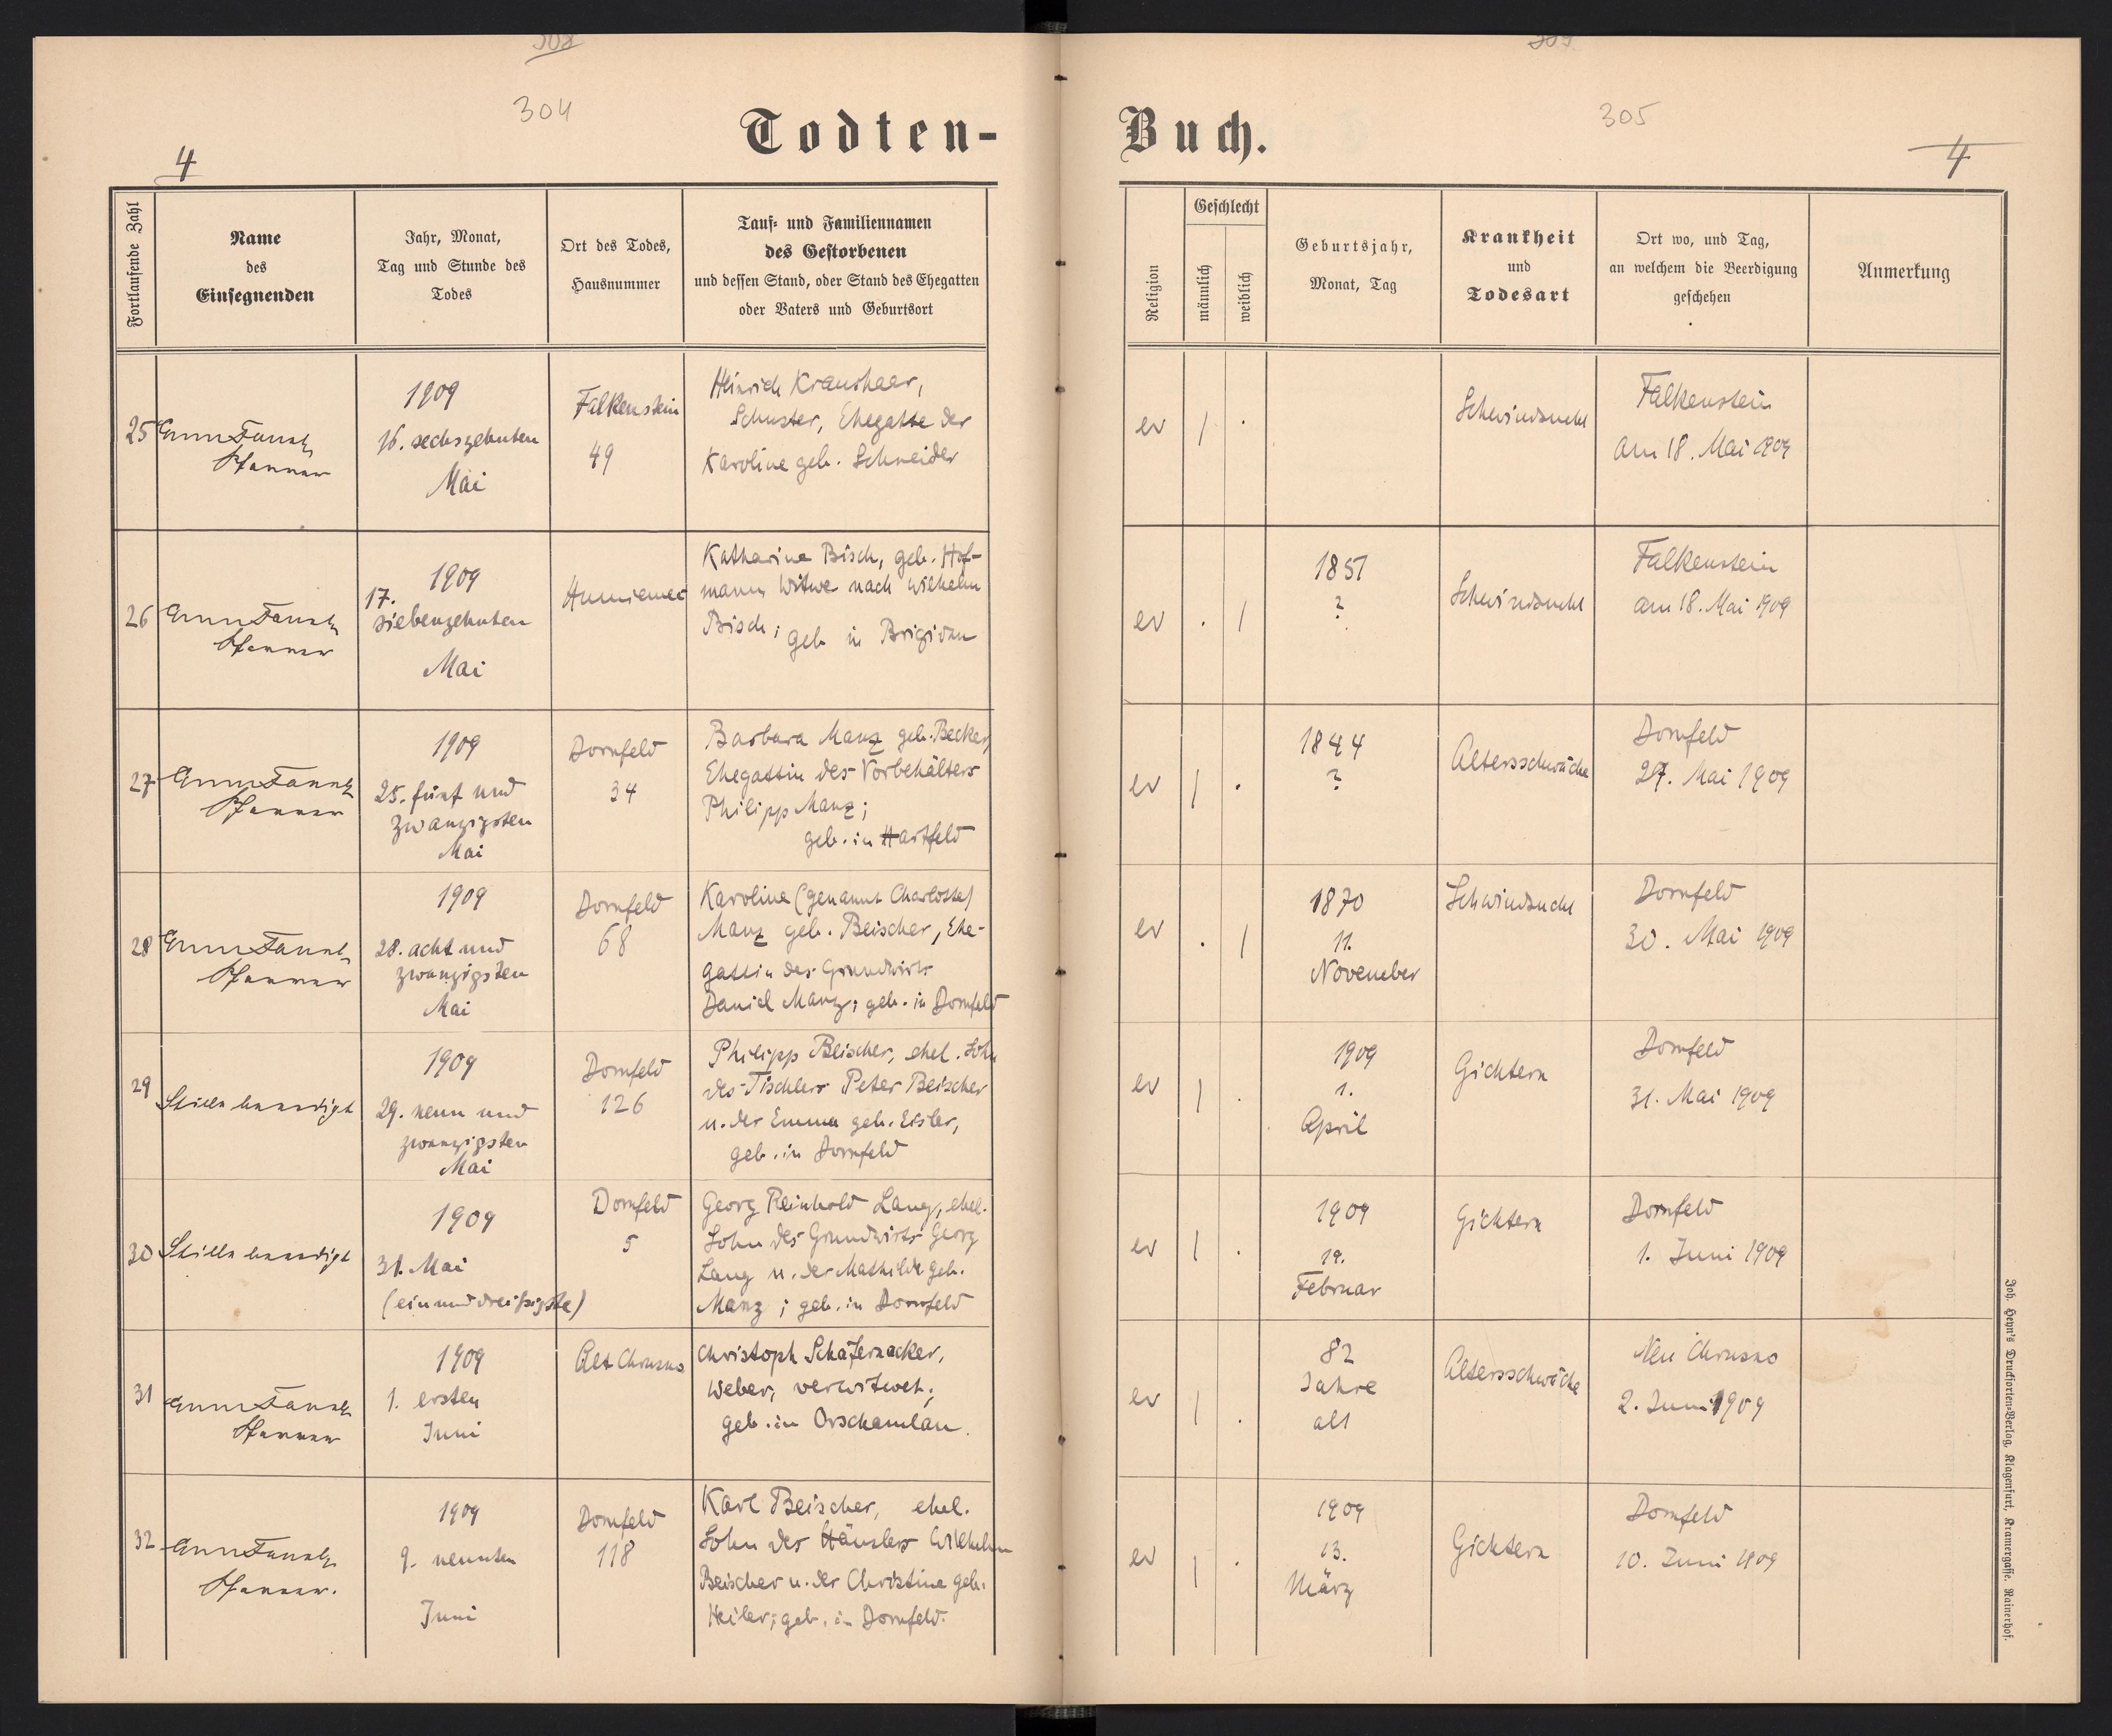 304
305
Todten-
Buch.
4
4
Fortlaufende Zahl
Name
des
Einsegnenden
Jahr, Monat,
Tag und Stunde des
Todes
Ort des Todes,
Hausnummer
Tauf- und Familiennamen
des Gestorbenen
und dessen Stand, oder Stand des Ehegatten
oder Vaters und Geburtsort
Religion
Geschlecht
männlich
weiblich
Geburtsjahr,
Monat, Tag
Krankheit
und
Todesart
Ort wo, und Tag,
an welchem die Beerdigung
geschehen
Anmerkung
25
Pfarrer
1909
16. sechszehnten
Mai
Falkenstein
49
Heinrich Kraushaar,
Schuster, Ehegatte der
Karoline geb. Schneider
ev
/
.
Schwindsucht
Falkenstein
am 18. Mai 1909
26
Pfarrer
1909
17.
siebenzehnten
Mai
Katharina Bisch, geb. Hof-
mann Witwe nach Wilhelm
Bisch; geb in Brigidau
ev
.
/
1851
?
Schwindsucht
Falkenstein
am 18. Mai 1909
27
Pfarrer
1909
25. fünf und
zwanzigsten
Mai
Dornfeld
34
Barbara Manz geb. Becker,
Ehegattin des Vorbehälters
Philipp Manz;
geb. in Hartfeld
ev
/
.
1844
?
Altersschwäche
Dornfeld
27. Mai 1909
28
Pfarrer
1909
28. acht und
zwanzigsten
Mai
Dornfeld
68
Karoline (genannt Charlotte)
Manz geb. Beischer, Ehe-
gattin des Grundwirts
Daniel Manz; geb. in Dornfeld
ev
.
/
1870
11.
November
Schwindsucht
Dornfeld
30. Mai 1909
29
Stille beerdigt
1909
29. neun und
zwanzigsten
Mai
Dornfeld
126
Philipp Beischer, ehel. Sohn
des Tischlers Peter Beischer
u. der Emma geb. Eisler,
geb. in Dornfeld
ev
/
.
1909
1.
April
Gichtern
Dornfeld
31. Mai 1909
30
Stille beerdigt
1909
31. Mai
(einunddreißigste)
Dornfeld
5
Georg Reinhold Lang, ehel.
Sohn des Grundwirts Georg
Lang u. der Mathilde geb.
Manz; geb. in Dornfeld
ev
/
.
1909
19.
Februar
Gichtern
Dornfeld
1. Juni 1909
31
Pfarrer
1909
1. ersten
Juni
Alt Chrusno
Christoph Schäfernacker,
Weber, verwitwet;
geb. in Orschamlan.
ev
/
.
82
Jahre
alt
Altersschwäche
Neu Chrusno
2. Juni 1909
32
Pfarrer.
1909
9. neunten
Juni
Dornfeld
118
Karl Beischer, ehel.
Sohn des Häuslers Wilhelm
Beischer u. der Christine geb.
Heiler; geb. in Dornfeld.
ev
/
.
1909
13.
März
Gichtern
Dornfeld
10. Juni 1909
Joh. Heyn's Drucksorten-Verlag, Klagenfurt, Kramergasse. Rainerhof.